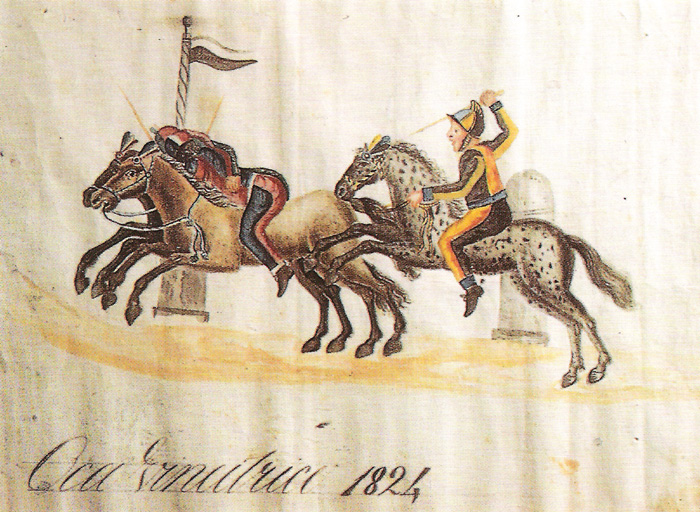 Oca Vincitrice 1824